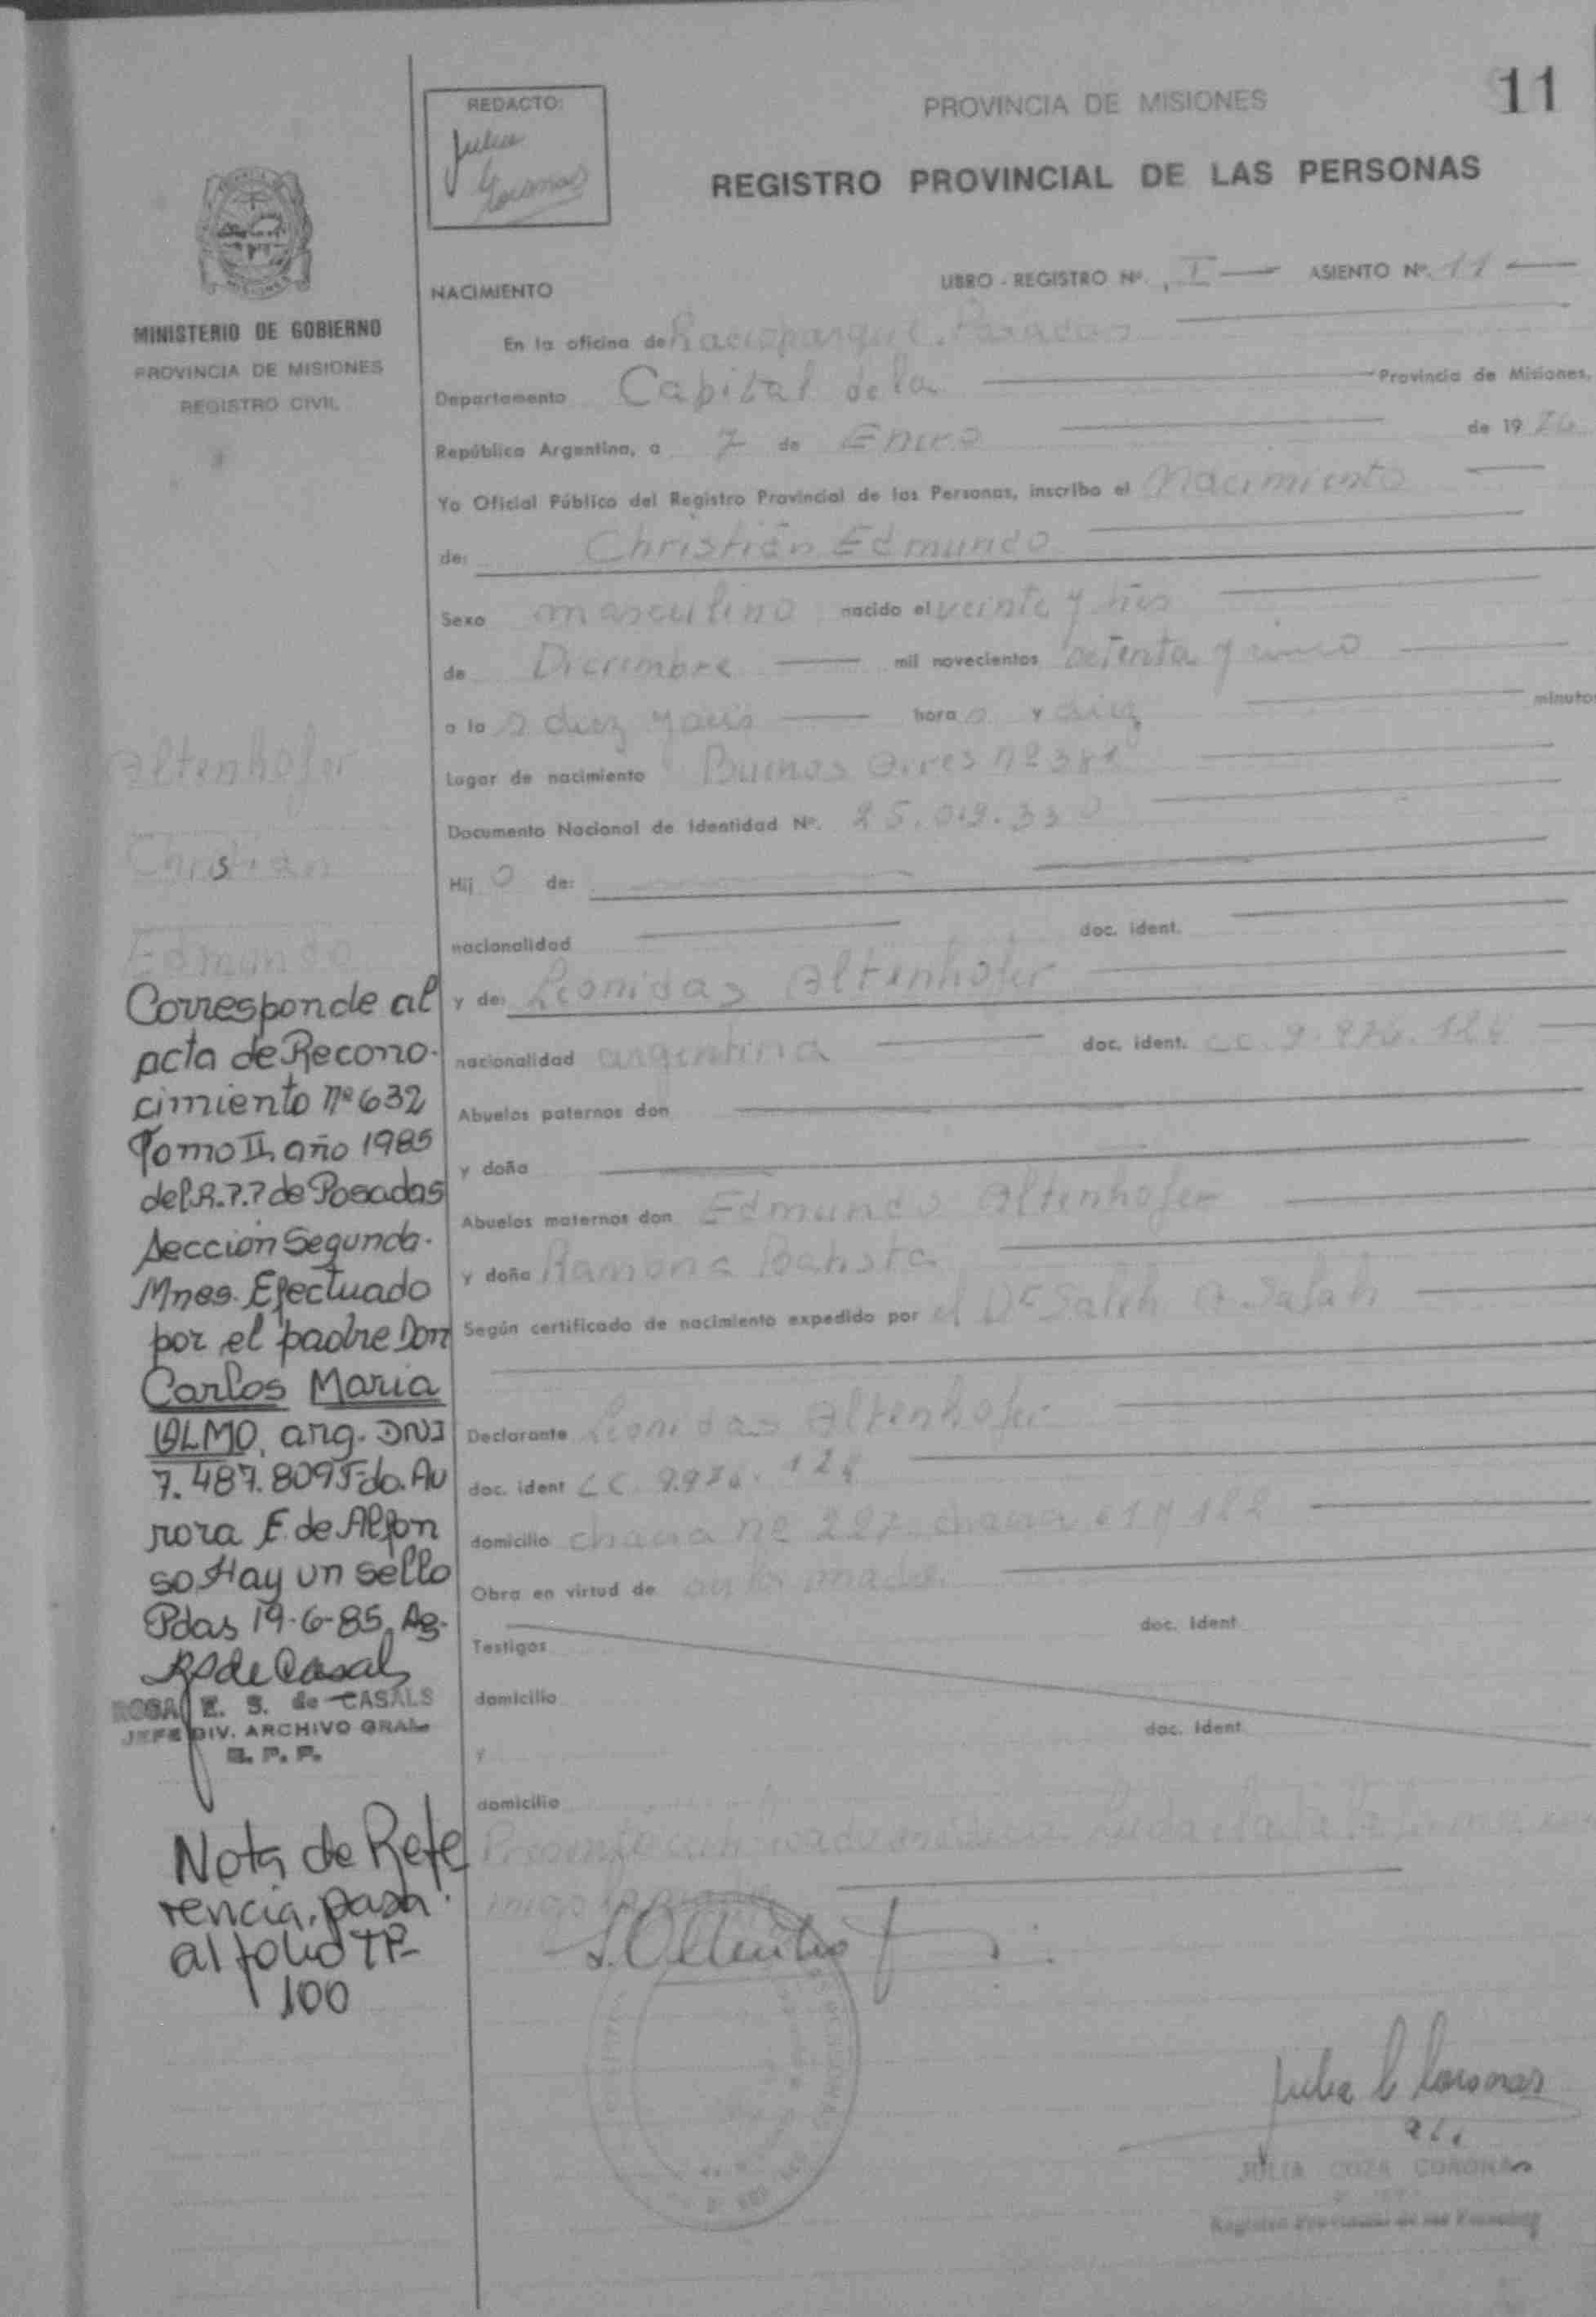 11
REDACTO:
Julia
Coronas
PROVINCIA DE MISIONES
REGISTRO PROVINCIAL DE LAS PERSONAS
MINISTERIO DE GOBIERNO
PROVINCIA DE MISIONES
REGISTRO CIVIL
NACIMIENTO
LIBRO - REGISTRO Nº. I ASIENTO Nº. 11
En la oficina de Posadas
Departamento Capital de la Provincia de Misiones,
República Argentina, a 7 de Enero de 1976
Yo Oficial Público del Registro Provincial de las Personas, inscribo el Nacimiento
de: Christián Edmundo
Sexo masculino nacido el veinte y tres
de Diciembre mil novecientos setenta y cinco
a las diez y seis horas y diez minutos
Lugar de nacimiento Buenos Aires nº 381
Documento Nacional de Identidad Nº. 25.019.330
Hijo de:
nacionalidad doc. ident.
y de: Leonidas Altenhofer
nacionalidad argentina doc. ident.
Abuelos paternos don
y doña
Abuelos maternos don Edmundo Altenhofer
y doña Ramona Batista
Según certificado de nacimiento expedido por el Dr Saleh
Declarante Leonidas Altenhofer
doc. ident LC 9.976.128
domicilio chacra nº 227
Obra en virtud de ser la madre
doc. ident
Testigos
domicilio
doc. ident
y
domicilio
Altenhofer
Christián
Edmundo
Corresponde al
acta de Recono-
cimiento nº 632
Tomo II, año 1985
del R.P.P de Posadas
Sección Segunda.
Mnes. Efectuado
por el padre Don
Carlos Maria
OLMO, arg. DNI
7.487.809 Fdo. Au
rora E. de Alfon
so Hay un sello
Pdas 19-6-85. Ag.
RS de Casals
ROSA E. S. de CASALS
JEFE DIV. ARCHIVO GRAL
R. P. P.
Nota de Refe
rencia, pasa
al folio TP-
100
Julia C Coronas
JULIA COZA CORONAS
Registro Provincial de las Personas